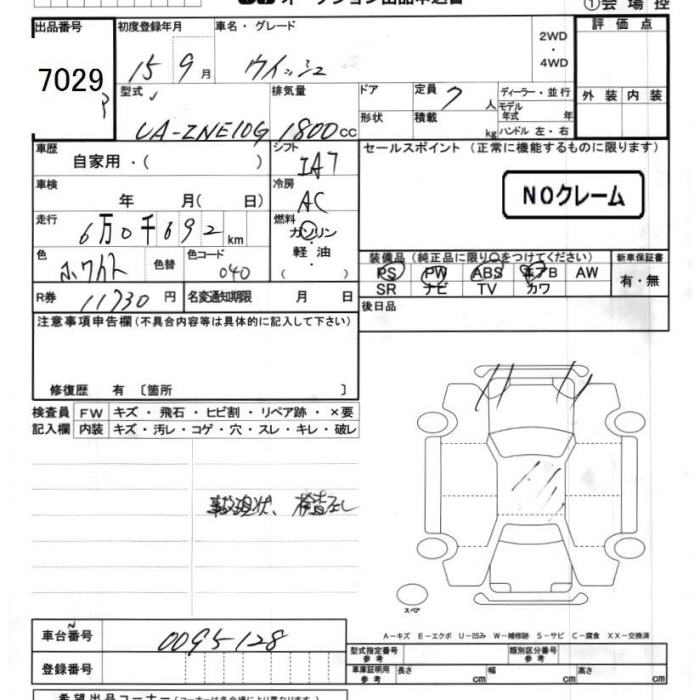 オークション出品申込書 ①会場控
出品番号 初度登録年月 車名・グレード 評価点
7029 15 9月 ウィッシュ 2WD・4WD
外装 内装
型式 排気量 ドア 定員 7人 ディーラー・並行
UA-ZNE10G 1800cc 形状 積載 kg モデル年式 年式
ハンドル 左・右
車歴 シフト セールスポイント(正常に機能するものに限ります)
自家用・( ) IA7
車検 冷房 NOクレーム
年 月(日) AC
走行 燃料
6万0千692km ガソリン・軽油・( )
色 色替 色コード 装備品(純正品に限り○をつけてください) 新車保証書
040 PS PW ABS エアB AW 有・無
SR ナビ TV カワ
R券 11730円 名変通知期限 月 日 後日品
注意事項申告欄(不具合内容等は具体的に記入して下さい)
修復歴 有〔箇所 〕
検査員 FW キズ・飛石・ヒビ割・リペア跡・×要
記入欄 内装 キズ・汚レ・コゲ・穴・スレ・キレ・破レ
事故現状、検査なし
スペア
A-キズ E-エクボ U-凹み W-補修跡 S-サビ C-腐食 XX-交換済
車台番号 0095128 型式指定番号 参考 類別区分番号 参考
登録番号 車庫証明用 参考 長さ cm 幅 cm 高さ cm
希望出品コーナー